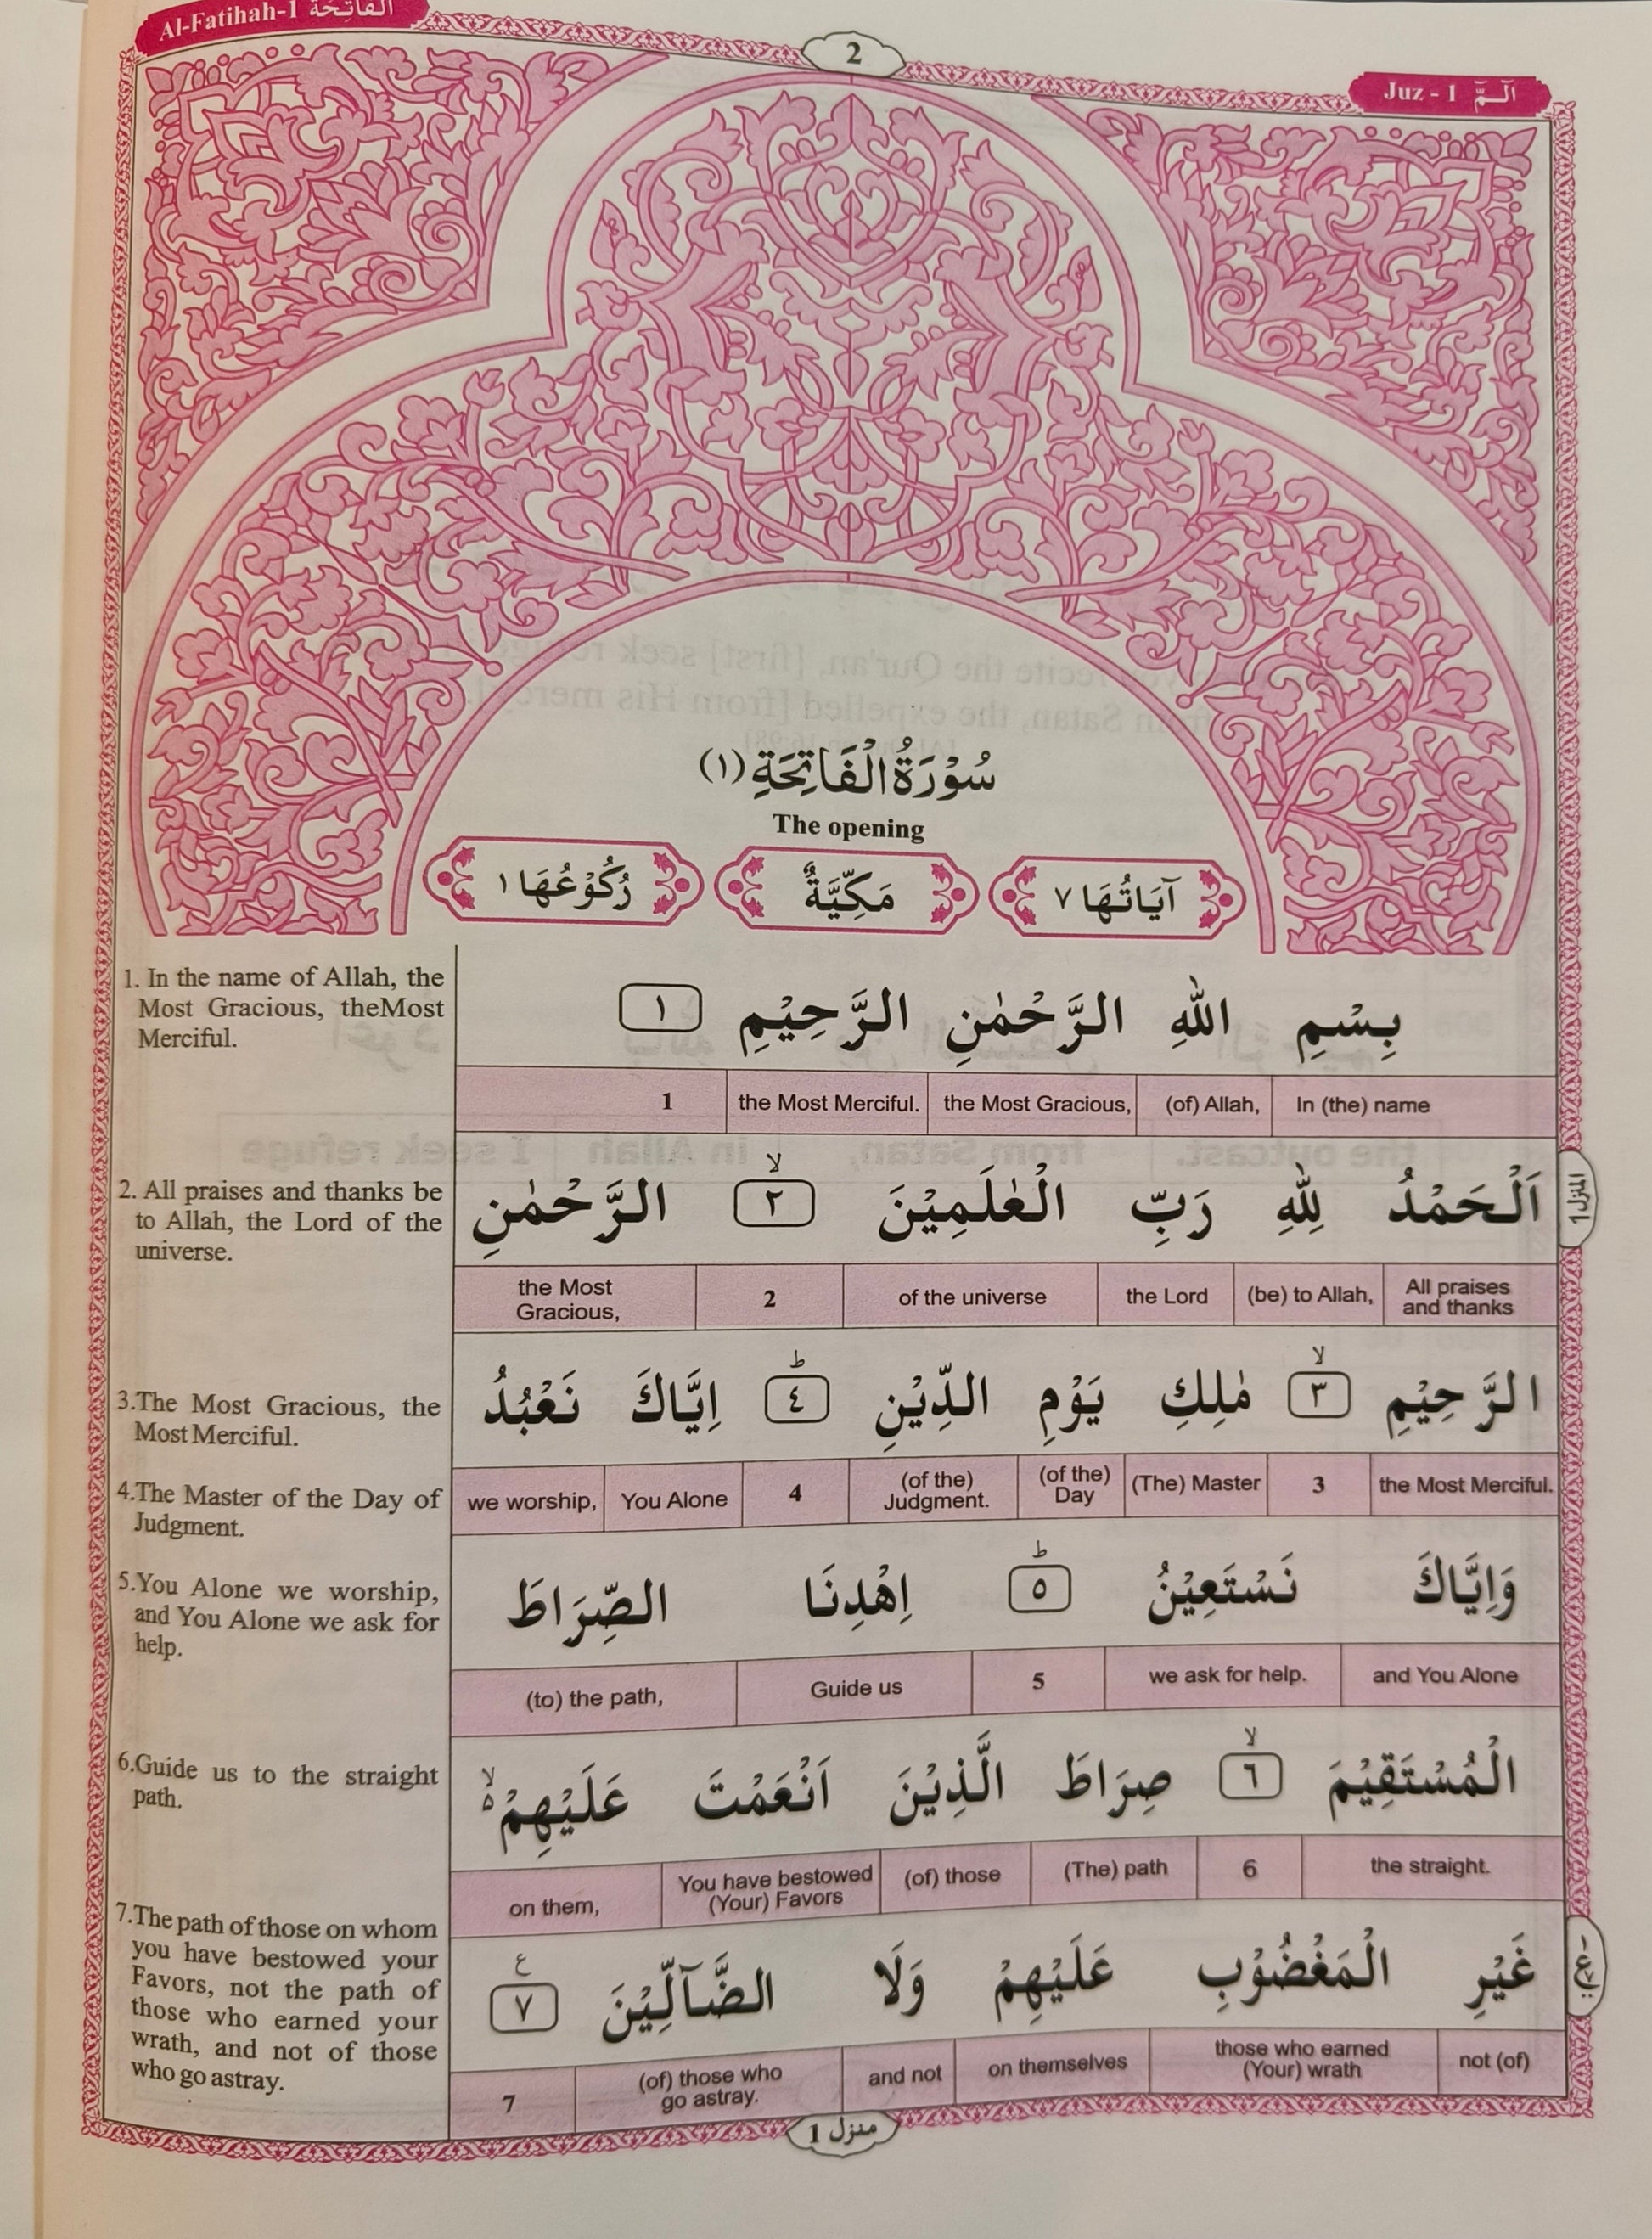 Al-Fatihah-1 الفَاتِحَة
2
Juz - 1 الٓـمّٓ
سُوْرَةُ الْفَاتِحَةِ (١)
The opening
آيَاتُهَا ٧ مَكِّيَّةٌ رُكُوْعُهَا ١
1. In the name of Allah, the
Most Gracious, theMost
Merciful.
بِسْمِ اللهِ الرَّحْمٰنِ الرَّحِيْمِ ١
In (the) name (of) Allah, the Most Gracious, the Most Merciful. 1
2. All praises and thanks be
to Allah, the Lord of the
universe.
اَلْحَمْدُ لِلّٰهِ رَبِّ الْعٰلَمِيْنَ ٢ۙ الرَّحْمٰنِ
All praises and thanks (be) to Allah, the Lord of the universe 2 the Most Gracious,
المنزل ١
3.The Most Gracious, the
Most Merciful.
4.The Master of the Day of
Judgment.
الرَّحِيْمِ ٣ۙ مٰلِكِ يَوْمِ الدِّيْنِ ٤ؕ اِيَّاكَ نَعْبُدُ
the Most Merciful. 3 (The) Master (of the) Day (of the) Judgment. 4 You Alone we worship,
5.You Alone we worship,
and You Alone we ask for
help.
وَاِيَّاكَ نَسْتَعِيْنُ ٥ؕ اِهْدِنَا الصِّرَاطَ
and You Alone we ask for help. 5 Guide us (to) the path,
6.Guide us to the straight
path.
الْمُسْتَقِيْمَ ٦ۙ صِرَاطَ الَّذِيْنَ اَنْعَمْتَ عَلَيْهِمْ ۙ۬ۥ
the straight. 6 (The) path (of) those You have bestowed (Your) Favors on them,
7.The path of those on whom
you have bestowed your
Favors, not the path of
those who earned your
wrath, and not of those
who go astray.
غَيْرِ الْمَغْضُوْبِ عَلَيْهِمْ وَلَا الضَّآلِّيْنَ ٧ ع
not (of) those who earned (Your) wrath on themselves and not (of) those who go astray. 7
منزل 1